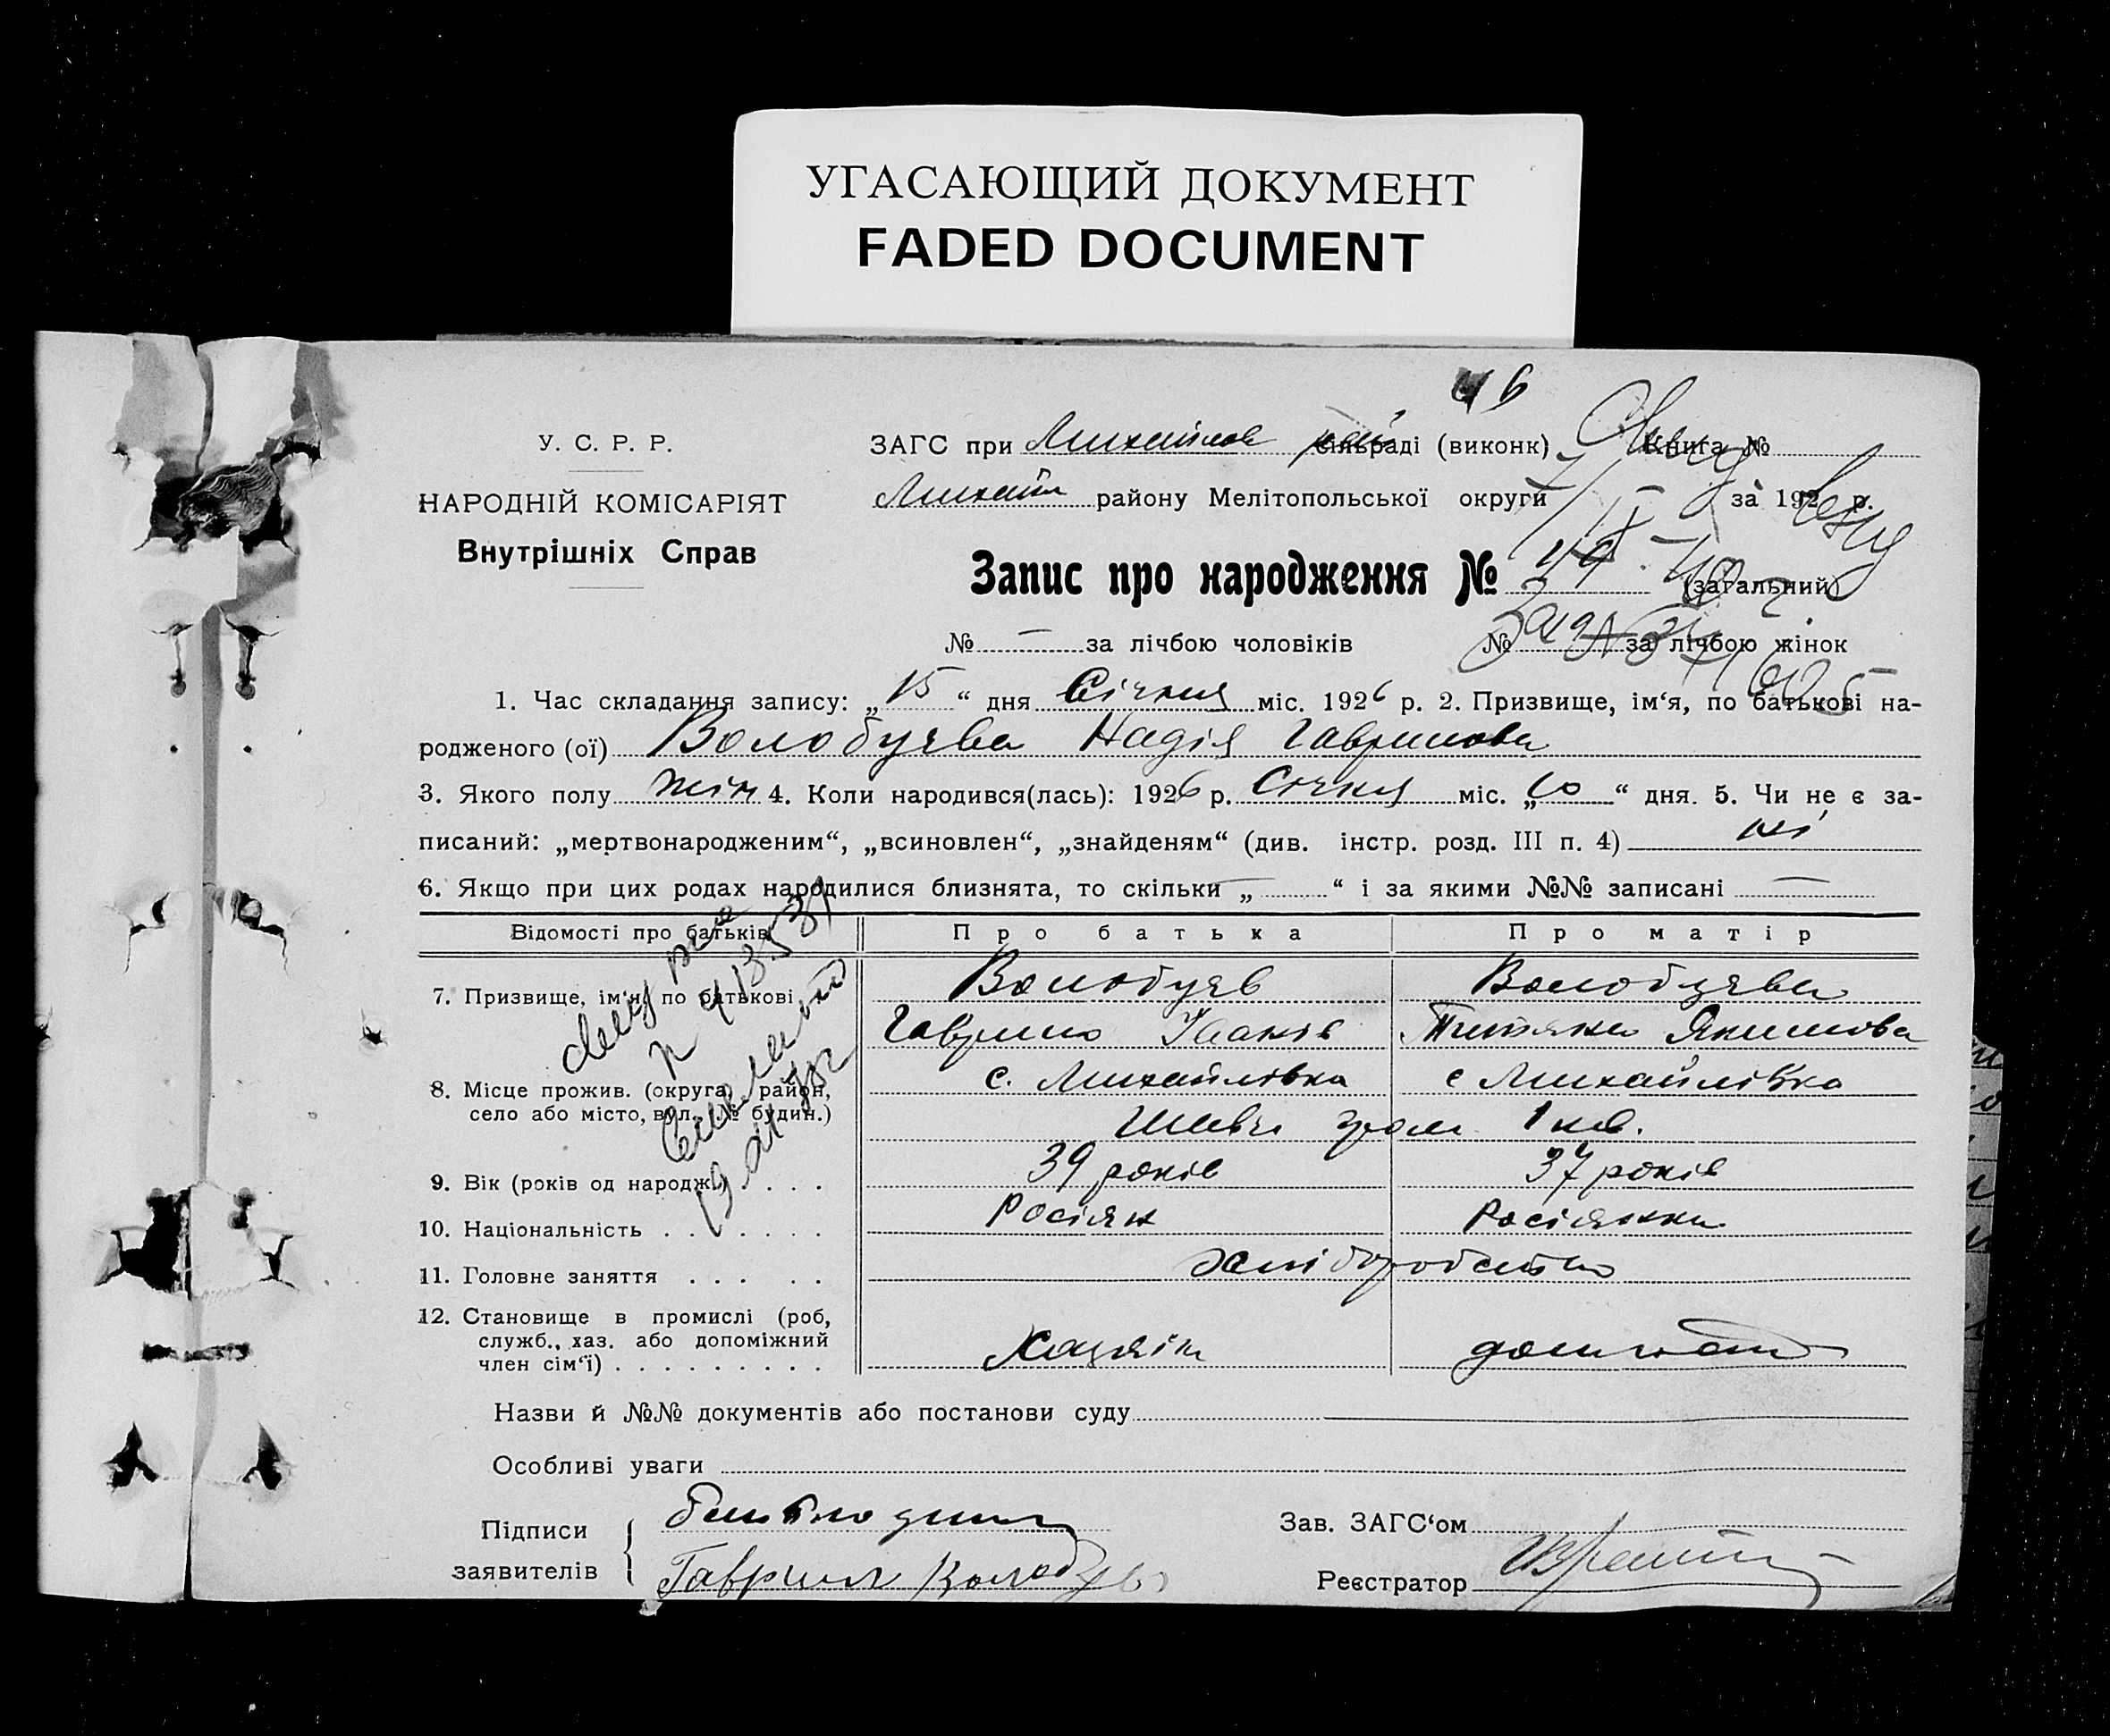 УГАСАЮЩИЙ ДОКУМЕНТ
FADED DOCUMENT
46
У. С. Р. Р.
НАРОДНІЙ КОМІСАРІЯТ
Внутрішніх Справ
ЗАГС при Михайлов рай сільраді (виконк) Книга №
Михайл району Мелітопольської округи за 192 р.
Запис про народження № 49 (загальний)
№ — за лічбою чоловіків № за лічбою жінок
1. Час складання запису: „15“ дня Січня міс. 1926 р. 2. Призвище, ім‘я, по батькові на-
родженого (ої) Волобуєва Надія Гаврилова
3. Якого полу жін 4. Коли народився(лась): 1926 р. Січня міс. „10“ дня. 5. Чи не є за-
писаний: „мертвонародженим“, „всиновлен“, „знайденям“ (див. інстр. розд. III п. 4) ні
6. Якщо при цих родах народилися близнята, то скільки „ — “ і за якими №№ записані —
Відомості про батьків Про батька Про матір
7. Призвище, ім‘я, по батькові Волобуєв Волобуєва
Гаврило Іванів Титяна Якимова
8. Місце прожив. (округа, район, с. Михайлівка с Михайлівка
село або місто, вул., № будин.) Шевч гром. 1 кв.
9. Вік (років од народж.) . . . . 39 років 37 років
10. Національність . . . . . . . Росіян Росіянка
11. Головне заняття . . . . . хліборобство
12. Становище в промислі (роб,
служб., хаз. або допоміжний
член сім‘ї) . . . . . . . . . Хазяїн
Назви й №№ документів або постанови суду
Особливі уваги
Підписи
заявителів Гаврил Волобуев
Зав. ЗАГС‘ом
Реєстратор